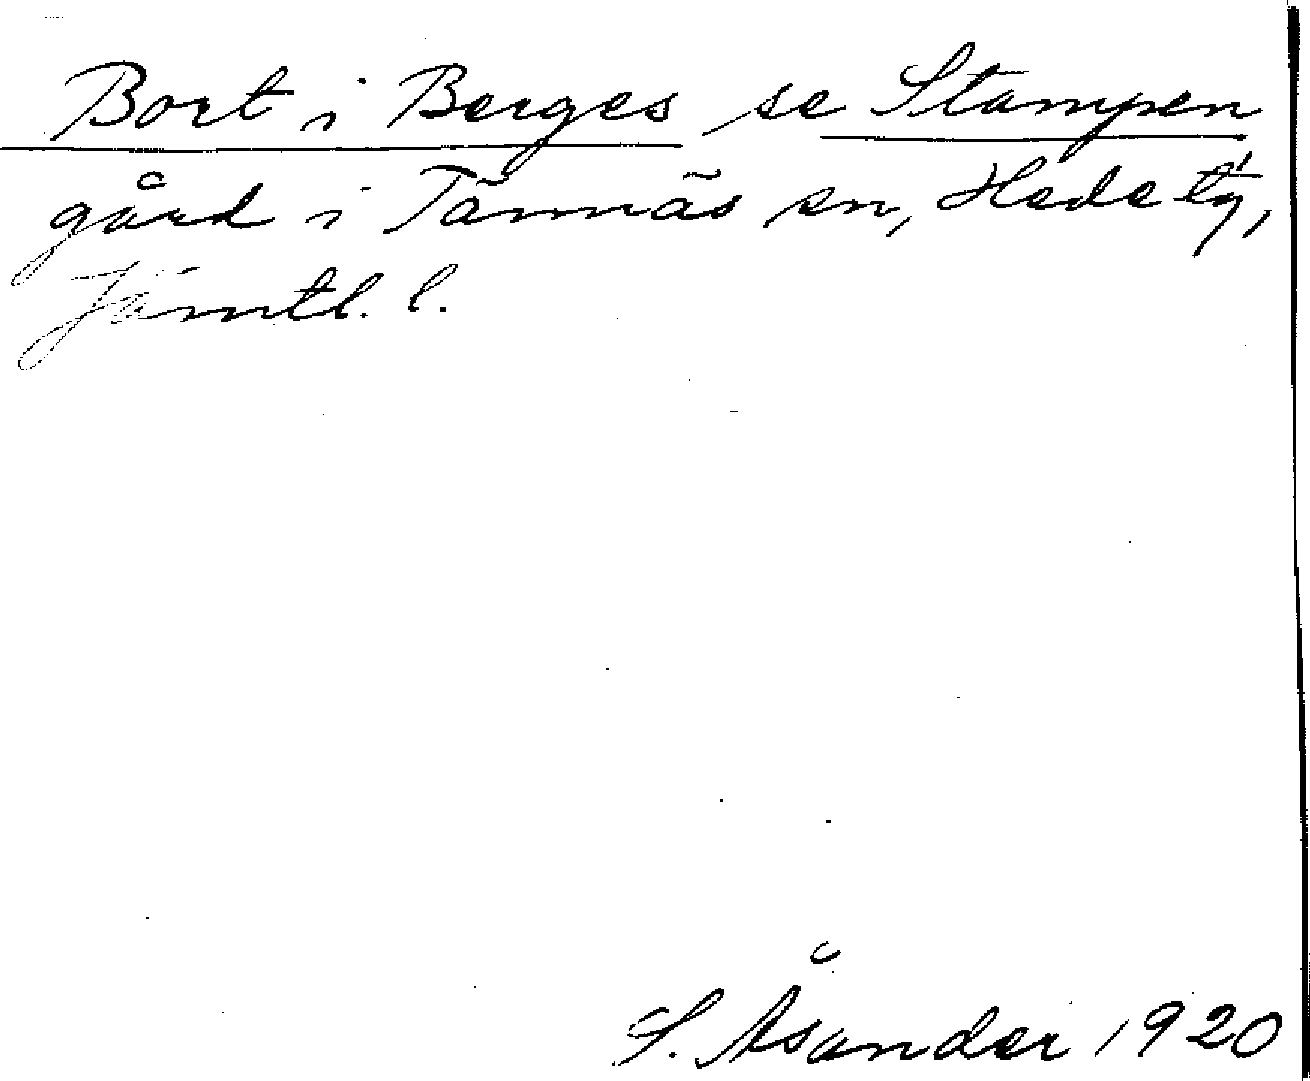 Bort i Berges se Stampen
gård i Tännäs sn, Hede tg,
Jämtl. l.
S. Åsander 1920